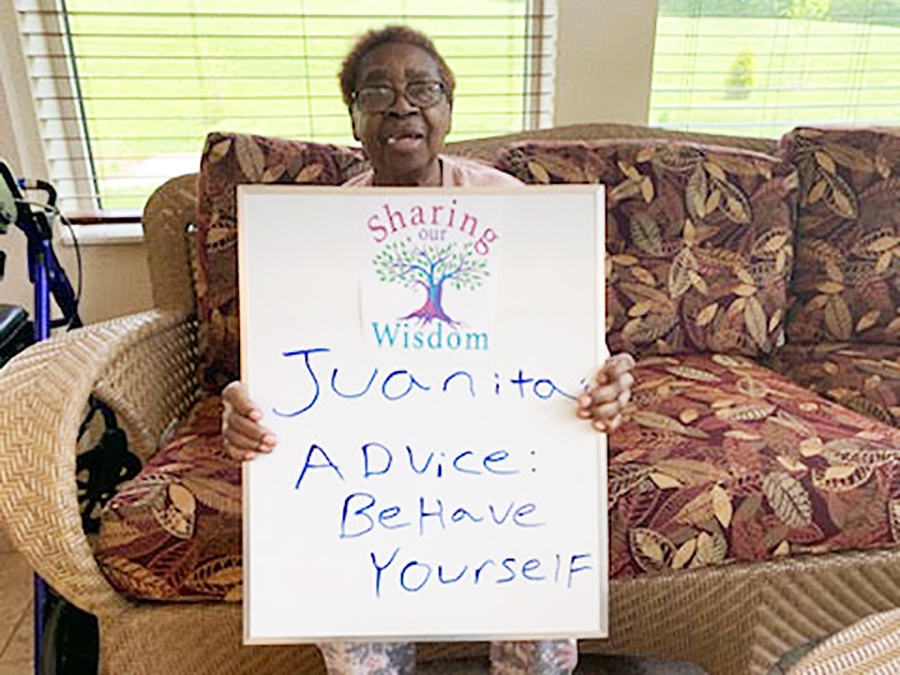 Sharing
our
Wisdom
Juanita:
ADVice:
BeHave
YourselF